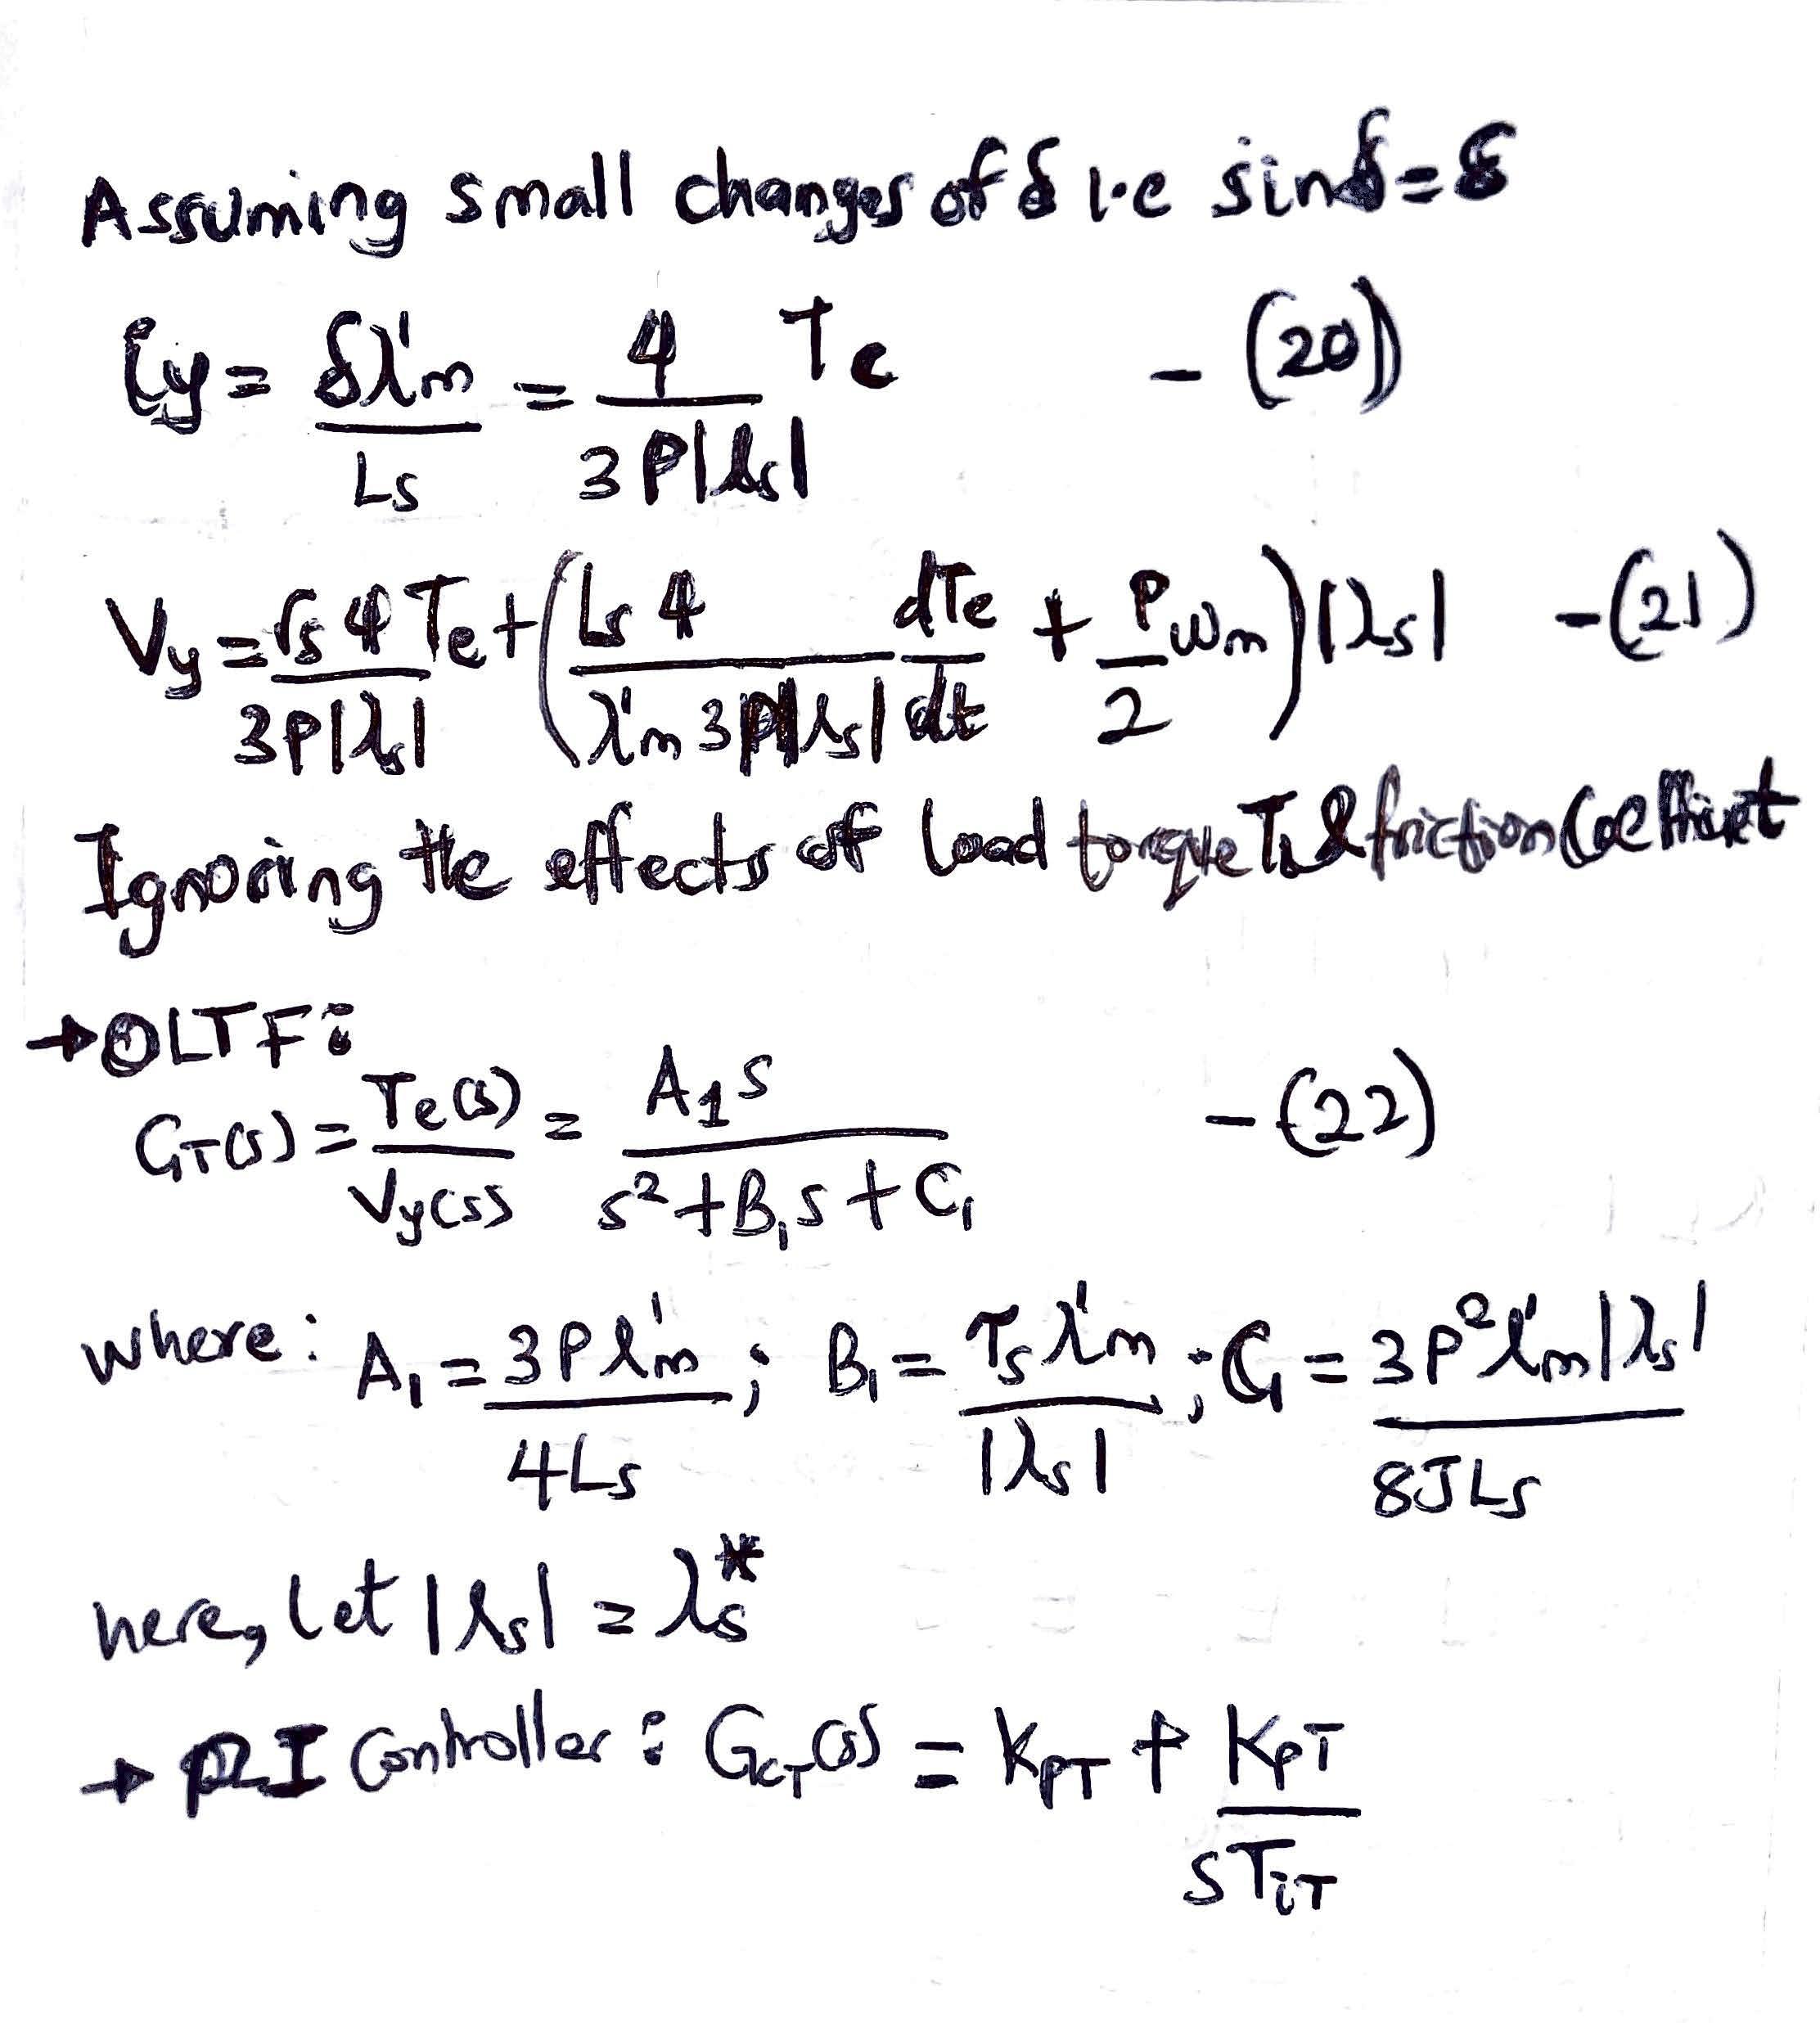 Assuming small changes of δ i.e sinδ=δ
iy = δλ'm / Ls = 4 / 3P|λs| Te - (20)
Vy = rs 4 / 3P|λs| Te + (Ls 4 / λ'm 3P|λs| dTe/dt + P/2 ωm) |λs| - (21)
Ignoring the effects of load torque TL & friction Coefficient
→ OLTF:
GT(s) = Te(s) / Vy(s) = A1s / s² + B1s + C1 - (22)
where: A1 = 3Pλ'm / 4Ls ; B1 = rsλ'm / |λs| ; C1 = 3P²λ'm|λs| / 8JLs
here, let |λs| = λs*
→ PI Controller : GcT(s) = KPT + KPT / sTiT